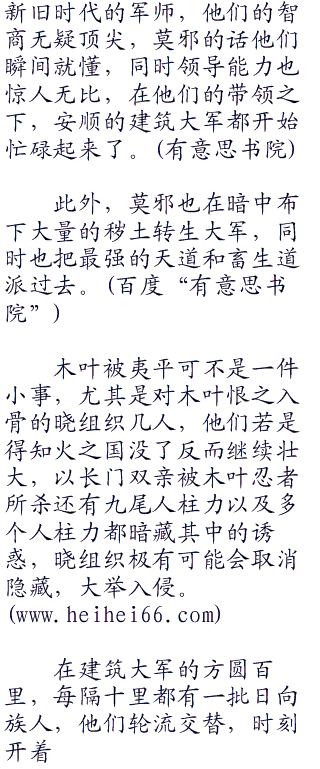 新旧时代的军师，他们的智
商无疑顶尖，莫邪的话他们
瞬间就懂，同时领导能力也
惊人无比，在他们的带领之
下，安顺的建筑大军都开始
忙碌起来了。(有意思书院)
此外，莫邪也在暗中布
下大量的秽土转生大军，同
时也把最强的天道和畜生道
派过去。(百度“有意思书
院”)
木叶被夷平可不是一件
小事，尤其是对木叶恨之入
骨的晓组织几人，他们若是
得知火之国没了反而继续壮
大，以长门双亲被木叶忍者
所杀还有九尾人柱力以及多
个人柱力都暗藏其中的诱
惑，晓组织极有可能会取消
隐藏，大举入侵。
(www.heihei66.com)
在建筑大军的方圆百
里，每隔十里都有一批日向
族人，他们轮流交替，时刻
开着